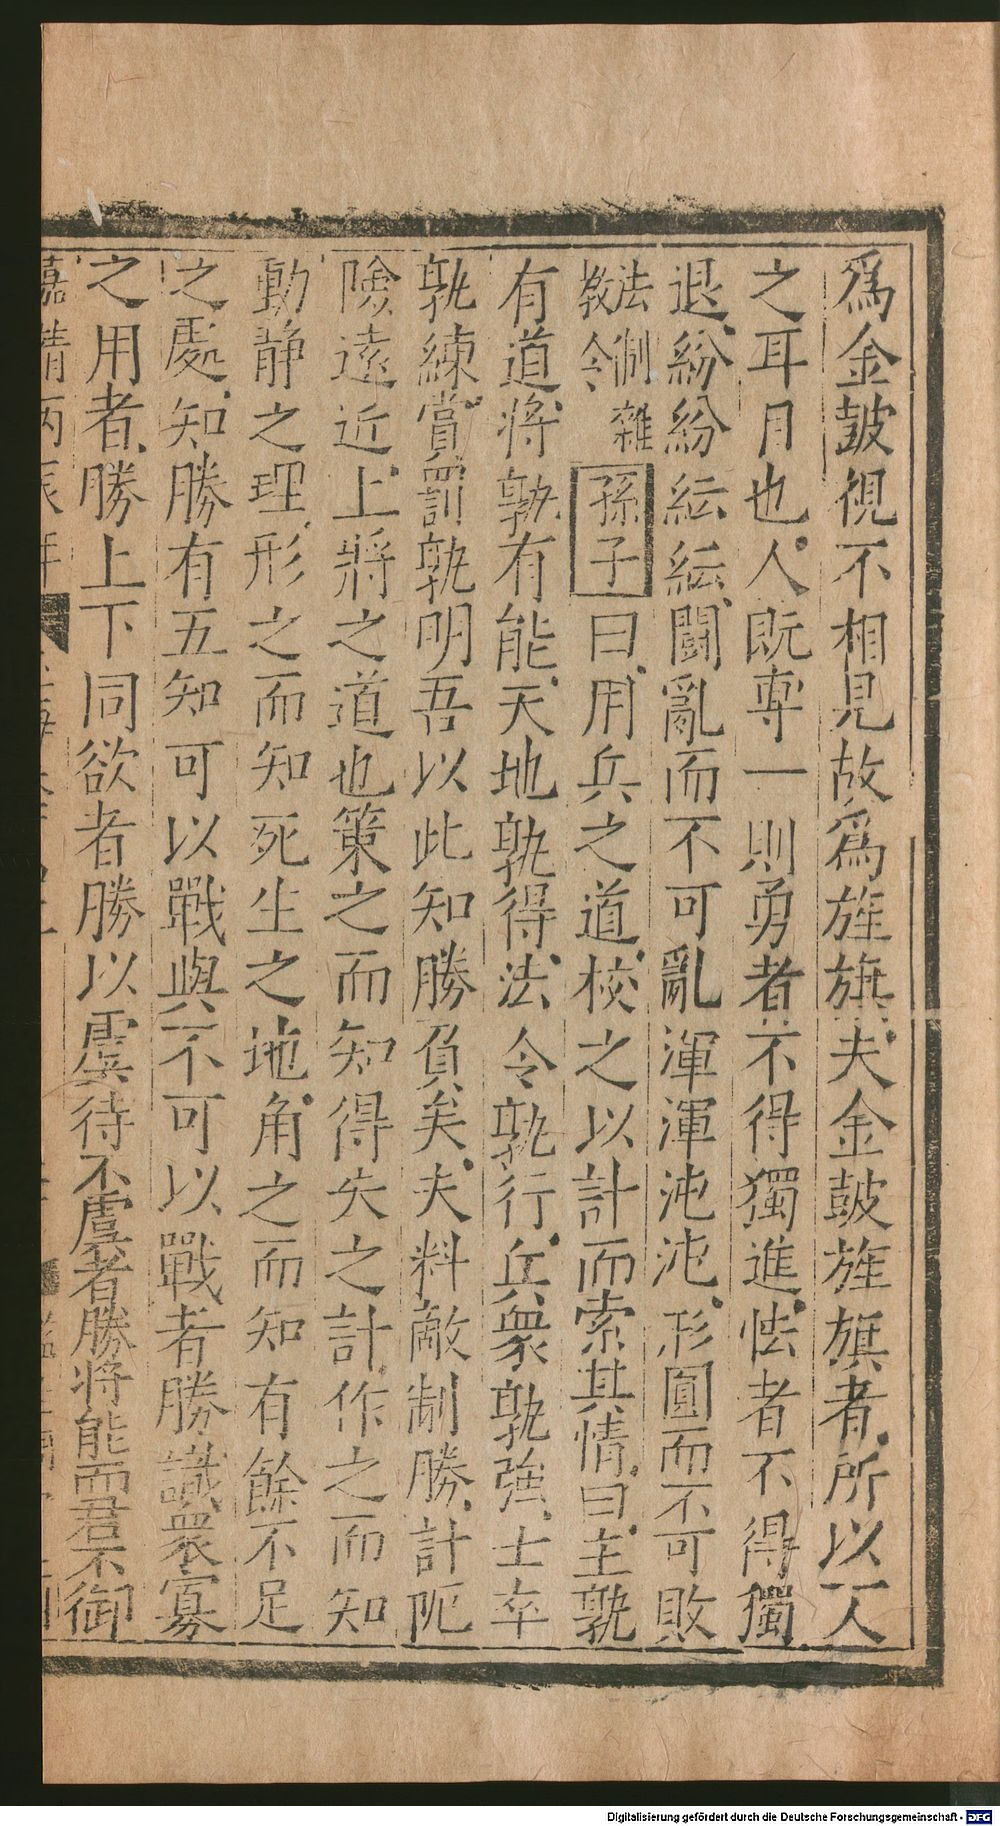 爲金鼓視不相見故爲旌旗夫金鼓旌旗者所以人
之耳目也人旣専一則勇者不得獨進怯者不得獨
退紛紛紜紜鬪亂而不可亂渾渾沌沌形圓而不可敗
法制雜
教令
孫子曰用兵之道校之以計而索其情曰主孰
有道將孰有能天地孰得法令孰行兵衆孰強士卒
孰練賞罰孰明吾以此知勝負矣夫料敵制勝計阨
險遠近上將之道也策之而知得失之計作之而知
動静之理形之而知死生之地角之而知有餘不足
之處知勝有五知可以戰與不可以戰者勝識衆寡
之用者勝上下同欲者勝以虞待不虞者勝將能而君不御
嘉靖丙辰年
Digitalisierung gefördert durch die Deutsche Forschungsgemeinschaft - DFG